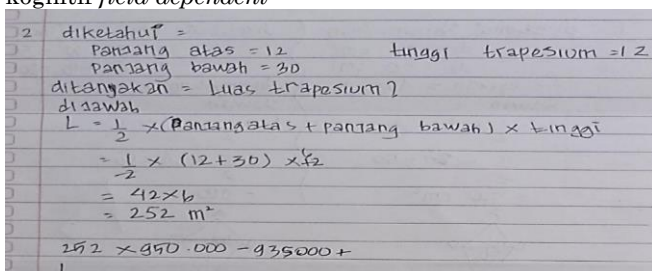 kognitif field dependent
2 diketahui =
Panjang atas = 12 tinggi trapesium = 12
Panjang bawah = 30
ditanyakan = Luas trapesium?
dijawab
L = 1/2 × (Panjang atas + panjang bawah) × tinggi
= 1/2 × (12 + 30) × 12 6
= 42 × 6
= 252 m²
252 × 950.000 - 935000 +